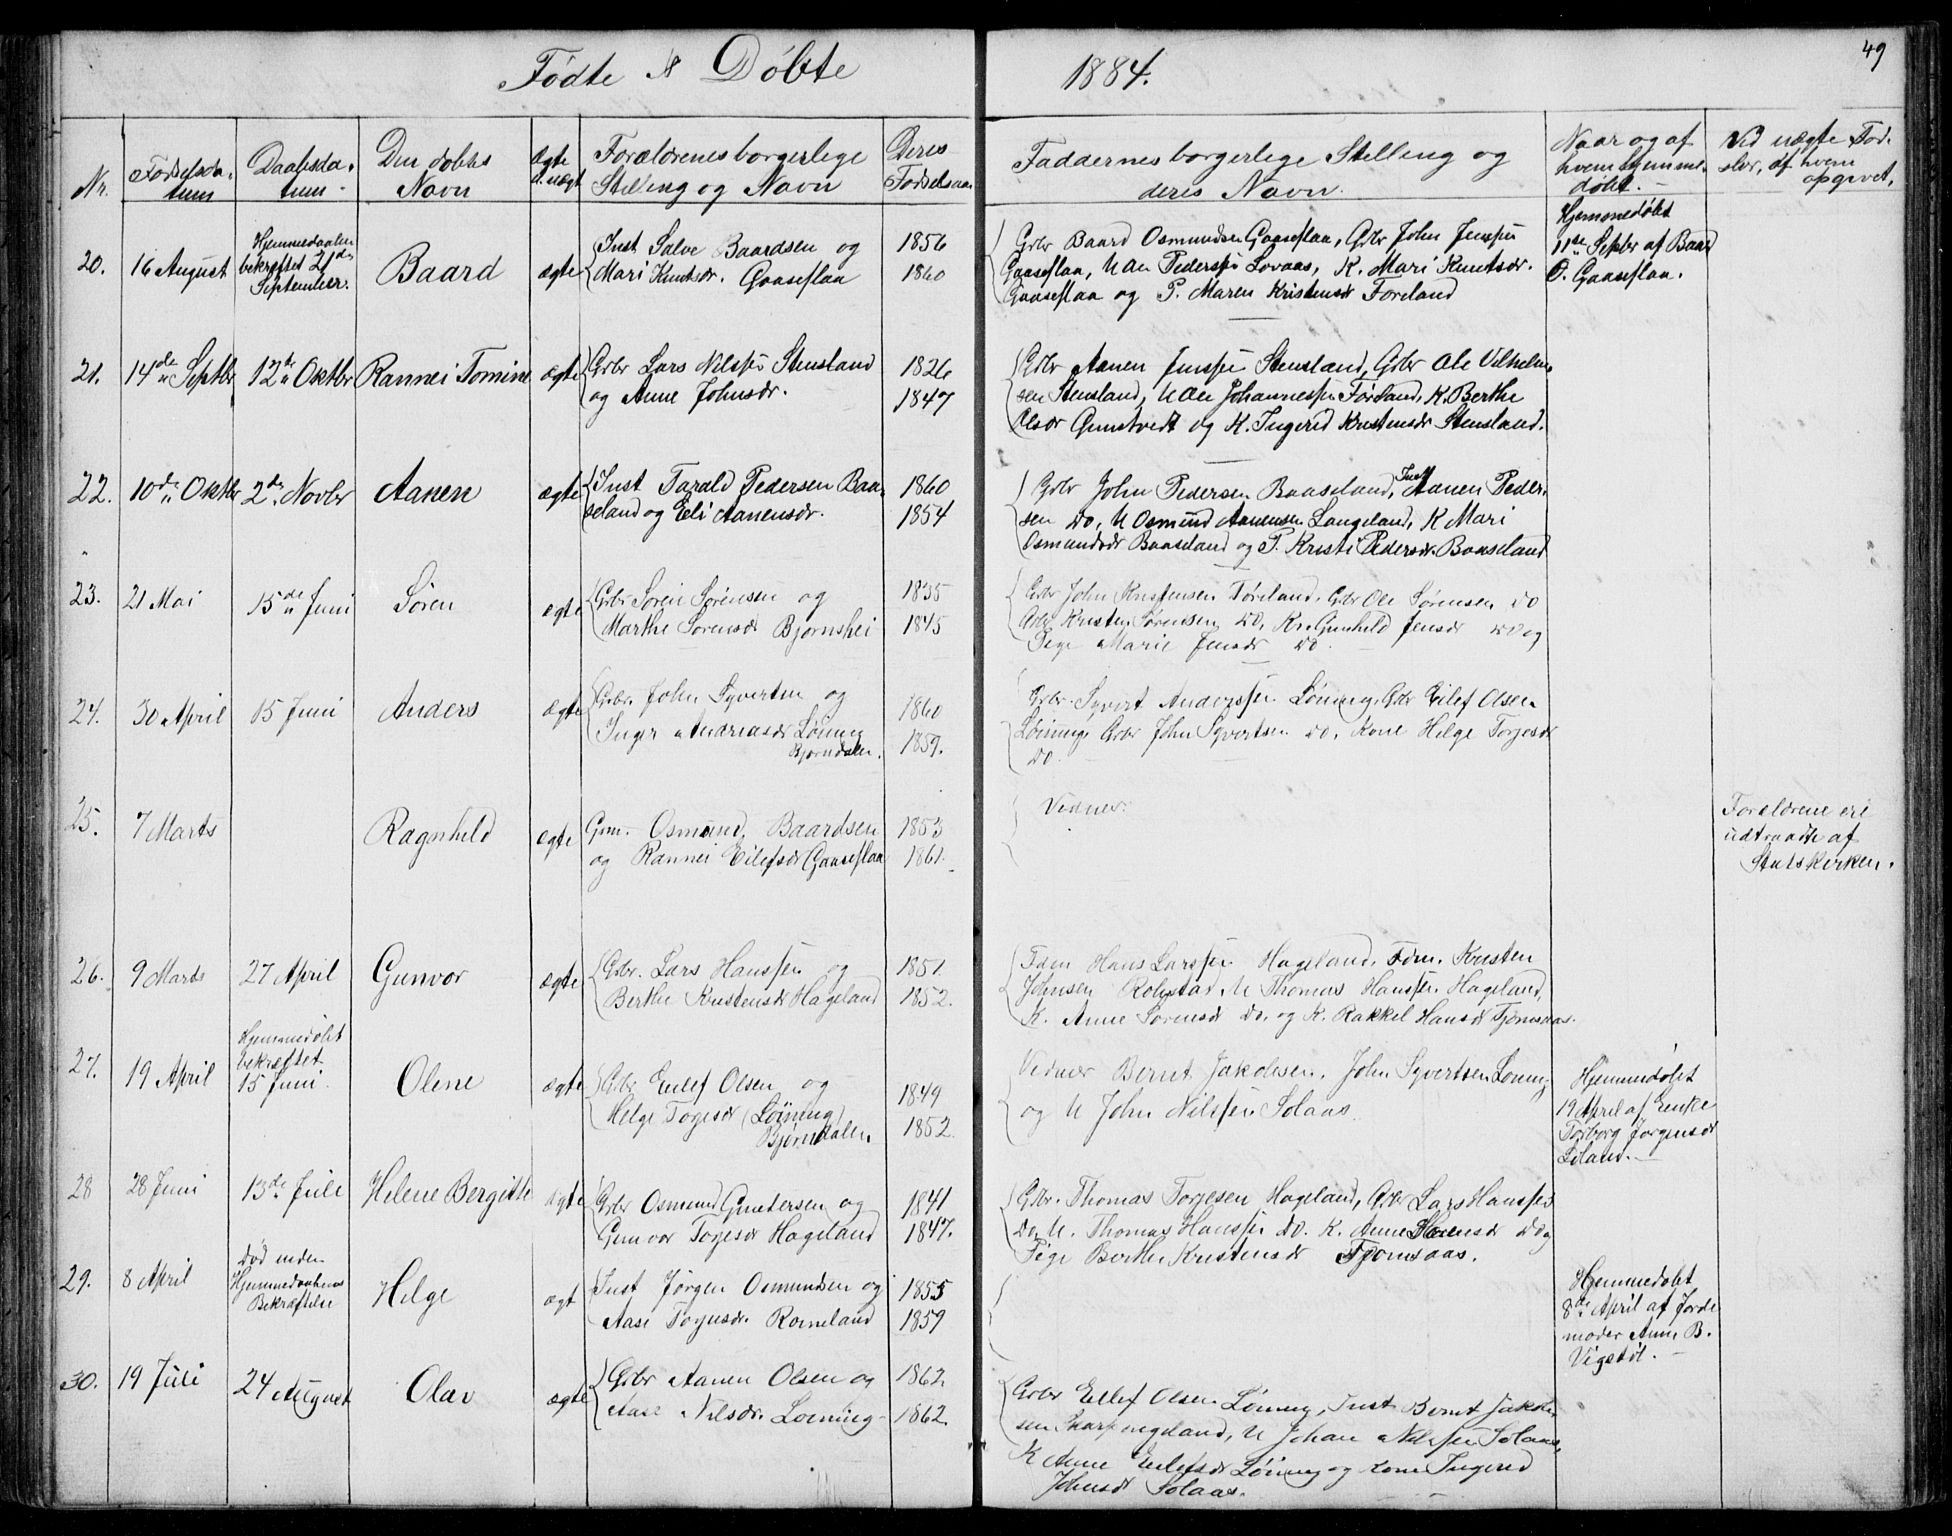 49
Fødte & Døbte 1884.
Nr. Fødselsdatum Daabsdatum Den døbtes Navn Ægte el. uægt Forældrenes borgerlige Stilling og Navn Deres Fødselsaar Faddernes borgerlige Stilling og deres Navn. Naar og af hvem hjemmedøbt. Ved uægte Fødsler, af hvem opgivet.
20. 16 August Hjemmedaaben bekræftet 21de September. Baard ægte Inst Salve Baardsen og 1856
Mari Knutsdr. Gaaseflaa 1860
Grbr Baard Osmundsen Gaaseflaa, Grbr John Jenssen
Gaaseflaa, U Ole Pederssen Lovaas, K. Mari Knutsdr.
Gaaseflaa og P. Maren Kristensdr Foreland
Hjemmedøbt
11te Septbr af Baard
O. Gaaseflaa.
21. 14de Septbr 12te Oktbr Rannei Tomine ægte Grbr Lars Nilssen Stensland 1826
og Anne Johnsdr. 1847
Grbr Aanen Jenssen Stensland, Grbr Ole Vilhelm-
sen Stensland, U Ole Johannessen Førland, K. Berthe
Olsdr Gunstvedt og K. Ingerid Kristensdr Stensland.
22. 10de Oktbr 2de Novbr Aanen ægte Inst Tarald Pedersen Baa- 1860
seland og Eli Aanensdr. 1854
Grbr John Pedersen Baaseland, Inst Aanen Peder-
sen Do, U Osmund Aanensen Langeland, K Mari
Osmundsdr Baaseland og P. Kristi Pedersdr. Baaseland
23. 21 Mai 15de Juni Søren ægte Grbr Søren Sørensen og 1835
Marthe Sørensdr Bjørnshei 1845
Grbr John Kristensen Føreland, Grbr Ole Sørensen Do
Grbr Kristen Sørensen Do, K. Gunhild Jensdr Do og
Pige Marie Jensdr Do.
24. 30 April 15 Juni Anders ægte Grbr. John Syvertsen og 1860
Inger Andreasdr Løining 1859.
Bjørndalen.
Grbr. Syvert Anderssen Løining, Grbr Eilef Olsen
Løining, Grbr John Syvertsen Do, Kone Helge Torjesdr
Do.
25. 7 Marts Ragnhild ægte Grm. Osmund Baardsen 1853
og Rannei Eilefsdr Gaaseflaa 1861.
Vidner.
Forældrene ere
udtraadte af
Statskirken.
26. 9 Marts 27 April Gunvor ægte Grbr. Lars Hanssen og 1851.
Berthe Kristensdr Hageland 1852.
Fdm Hans Larssen Hageland, Fdm. Kristen
Johnsen Robstad U Thomas Hanssen Hageland,
K. Anne Sørensdr Do. og K. Rakkel Hansdr Tjomsaas.
27. 19 April Hjemmedøbt bekræftet 15 Juni. Olene ægte Grbr Eilef Olsen og 1849
Helge Torjesdr (Løining) 1852.
Bjørndalen
Vidner Bernt Jakobsen, John Syvertsen Løining
og U John Nilssen Solaas
Hjemmedøbt
19 April af Enke
Torborg Jørgensdr
Leland.
28 28 Juni 13de Juli Helene Bergitte ægte Grbr Osmund Gundersen og 1841
Gunvor Torjesdr Hageland 1847.
Grbr. Thomas Torjesen Hageland, Grbr Lars Hanssen
Do, U. Thomas Hanssen Do. K. Anne Sørensdr Do og
Pige Berthe Kristensdr Tjomsaas.
29. 8 April Død uden Hjemmedaabens Bekræftelse Helge ægt Inst Jørgen Osmundsen og 1855
Aase Torjusdr. Romeland 1859
Hjemmedøbt
8de April af Jorde-
moder Anne B.
Vigstøl.
30. 19 Juli 24 August Olav ægte Grbr Aanen Olsen og 1862
Aase Nilsdr. Løining 1862.
Grbr Eilef Olsen Løining, Inst Bernt Jakob-
sen Skarpengland, U Johan Nilssen Solaas,
K Anne Eilefsdr Løining og Kone Ingerid
Johnsdr Solaas.